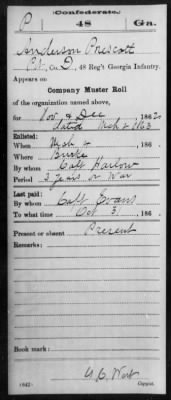 Confederate.
P 48 Ga.
Anderson Prescott
Pvt, Co. D, 48 Reg't Georgia Infantry.
Appears on
Company Muster Roll
of the organization named above,
for Nov & Dec, 1862
dated Mch 2 1863
Enlisted:
When Mch 4, 186
Where Burke
By whom Capt Harlow
Period 3 years or War
Last paid:
By whom Capt Evans
To what time Oct 31, 186
Present or absent Present
Remarks:
Book mark:
(642) Copyist.